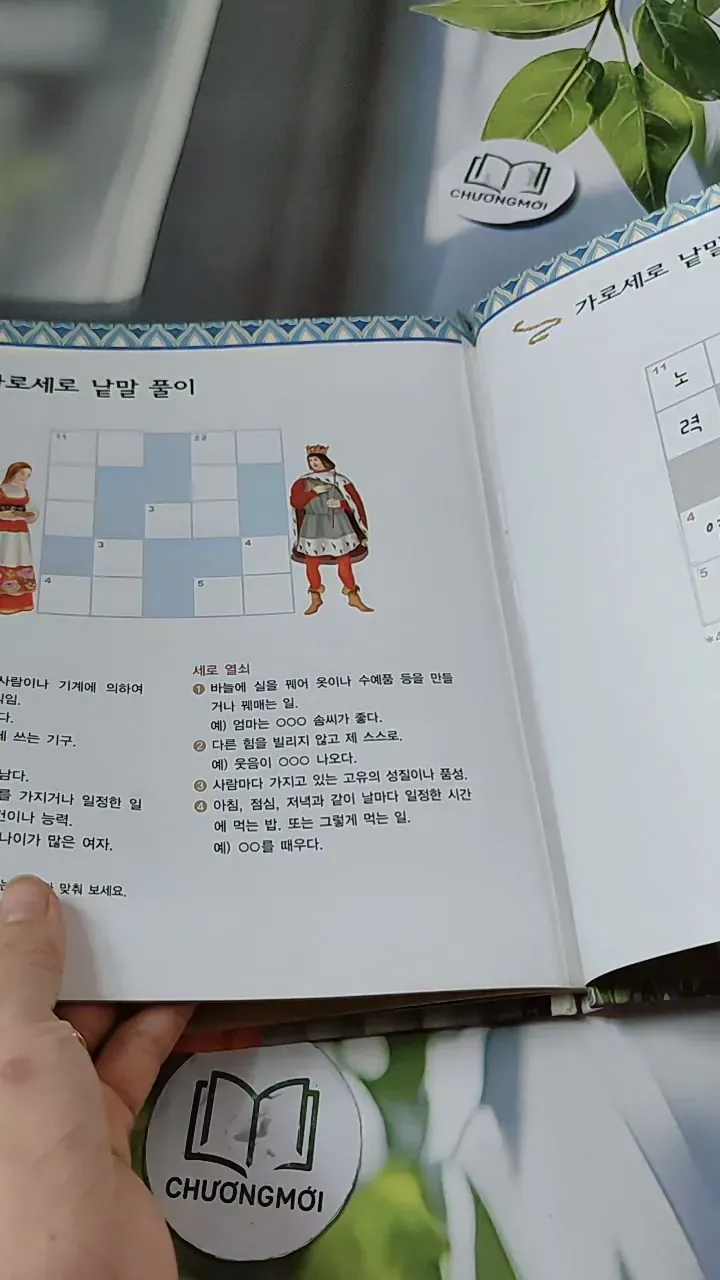 CHƯƠNGMỚI
로세로 낱말 풀이
11
22
3
3
4
4
5
사람이나 기계에 의하여
임.
다.
에 쓰는 기구.
남다.
를 가지거나 일정한 일
건이나 능력.
나이가 많은 여자.
맞춰 보세요.
세로 열쇠
1 바늘에 실을 꿰어 옷이나 수예품 등을 만들
거나 꿰매는 일.
예) 엄마는 ○○○ 솜씨가 좋다.
2 다른 힘을 빌리지 않고 제 스스로.
예) 웃음이 ○○○ 나오다.
3 사람마다 가지고 있는 고유의 성질이나 품성.
4 아침, 점심, 저녁과 같이 날마다 일정한 시간
에 먹는 밥. 또는 그렇게 먹는 일.
예) ○○를 때우다.
가로세로 낱말
11
노
력
4
5
CHƯƠNGMỚI